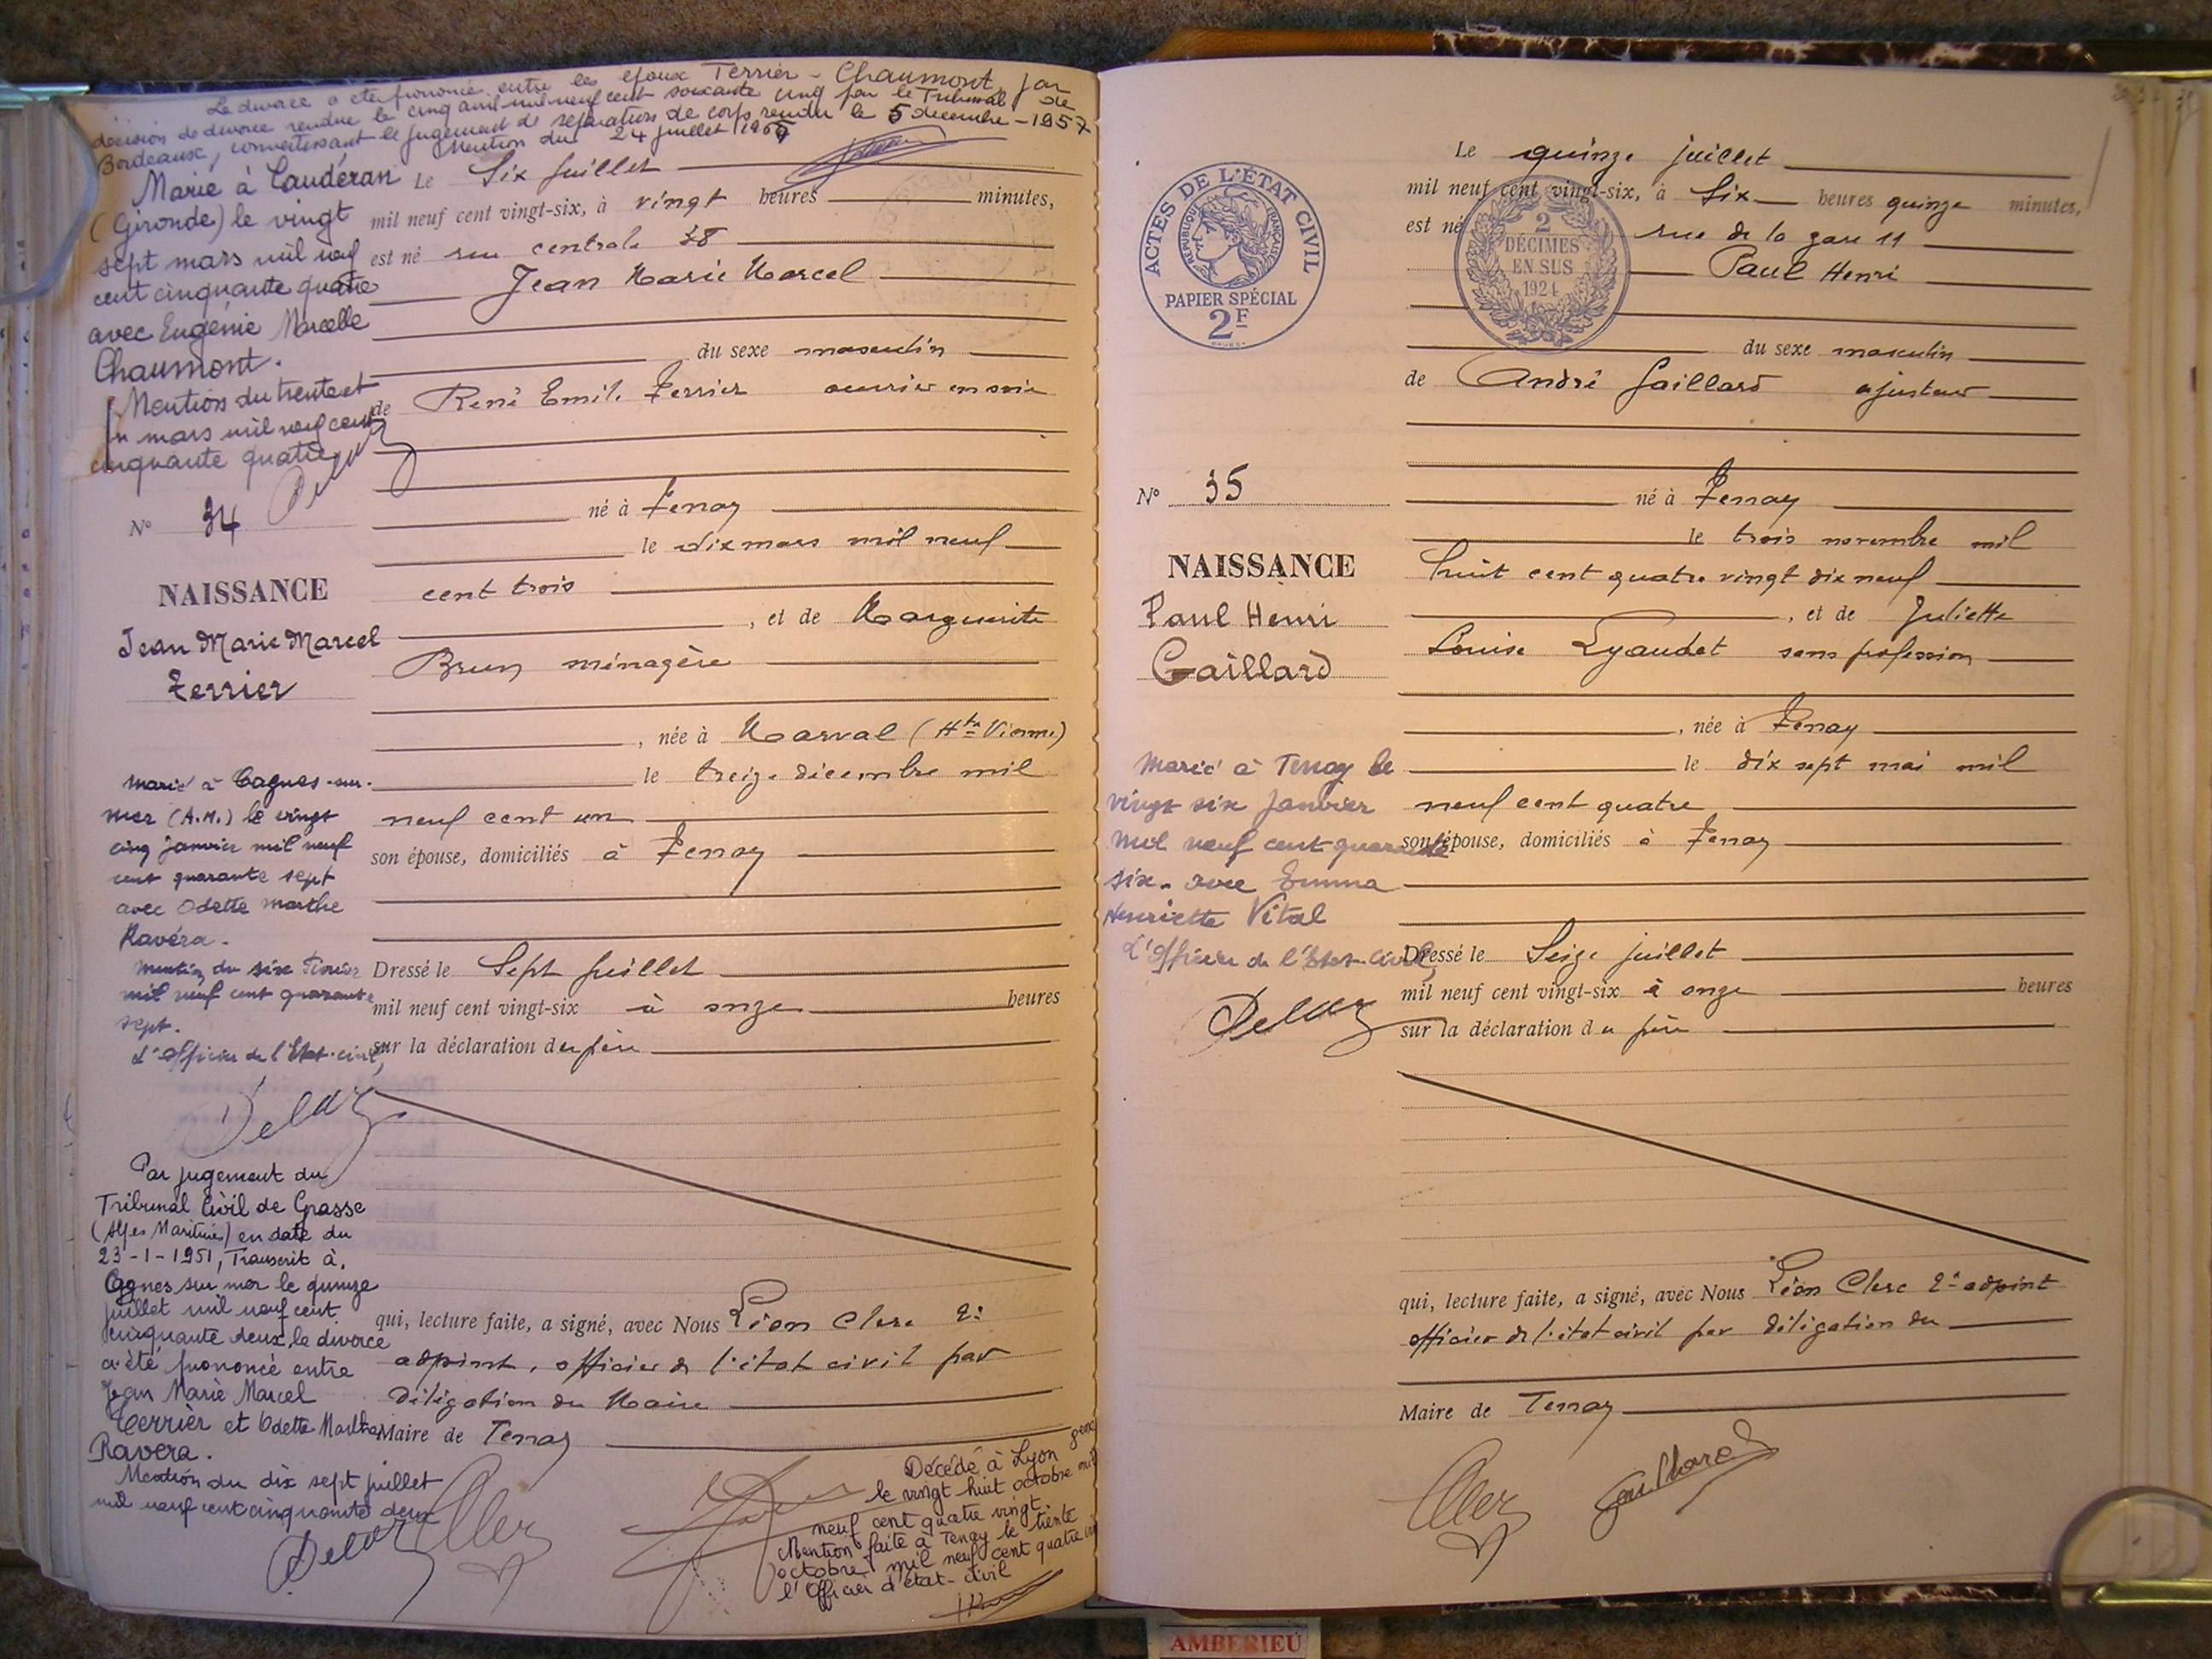 Le divorce a été prononcé entre les époux Terrier - Chaumont, par
décision de divorce rendue le cinq avril mil neuf cent soixante cinq par le Tribunal de
Bordeaux, convertissant le jugement de séparation de corps rendu le 5 decembre - 1957
Mention du 24 juillet
Marié à Caudéran
(Gironde) le vingt
sept mars mil neuf
cent cinquante quatre
avec Eugénie Marcelle
Chaumont.
Mention du trente et
un mars mil neuf cent
cinquante quatre
N° 34
NAISSANCE
Jean Marie Marcel
Terrier
Marié à Cagnes-sur-
mer (A.M.) le vingt
cinq janvier mil neuf
cent quarante sept
avec Odette Marthe
Ravéra.
Mention du six Février
mil neuf cent quarante
sept.
L'Officier de l'Etat-civil,
Par jugement du
Tribunal Civil de Grasse
(Alpes Maritimes) en date du
23-1-1951, Transcrit à
Cagnes sur mer le quinze
juillet mil neuf cent
cinquante deux, le divorce
a été prononcé entre
Jean Marie Marcel
Terrier et Odette Marthe
Ravera.
Mention du dix sept juillet
mil neuf cent cinquante deux
Le Six juillet
mil neuf cent vingt-six, à vingt heures minutes,
est né rue centrale 38
Jean Marie Marcel
du sexe masculin
de René Emile Terrier ouvrier en soie
né à Tenay
le dix mars mil neuf
cent trois
, et de Marguerite
Brun ménagère
, née à Marval (Hte Vienne)
le treize décembre mil
neuf cent un
son épouse, domiciliés à Tenay
Dressé le Sept juillet
mil neuf cent vingt-six à onze heures
sur la déclaration du père
qui, lecture faite, a signé, avec Nous Léon Clerc 2e
adjoint, officier de l'état civil par
délégation du Maire
Maire de Tenay
Décédé à Lyon
le vingt huit octobre mil
neuf cent quatre vingt.
Mention faite à Tenay le trente
octobre mil neuf cent quatre
l'Officier d'état-civil
ACTES DE L'ÉTAT CIVIL
RÉPUBLIQUE FRANÇAISE
PAPIER SPÉCIAL
2F
2
DÉCIMES
EN SUS
1924
N° 35
NAISSANCE
Paul Henri
Gaillard
Marié à Tenay le
vingt six janvier
mil neuf cent quarante
six. avec Emma
Henriette Vital
L'Officier de l'Etat-Civil,
Le quinze juillet
mil neuf cent vingt-six, à Six heures quinze minutes,
est né rue de la gare 11
Paul Henri
du sexe masculin
de André Gaillard ajusteur
né à Tenay
le trois novembre mil
huit cent quatre vingt dix neuf
, et de Juliette
Louise Lyaudet sans profession
, née à Tenay
le dix sept mai mil
neuf cent quatre
son épouse, domiciliés à Tenay
Dressé le Seize juillet
mil neuf cent vingt-six à onze heures
sur la déclaration du père
qui, lecture faite, a signé, avec Nous Léon Clerc 2e adjoint
officier de l'état civil par délégation du
Maire de Tenay
Gaillard
AMBERIEU